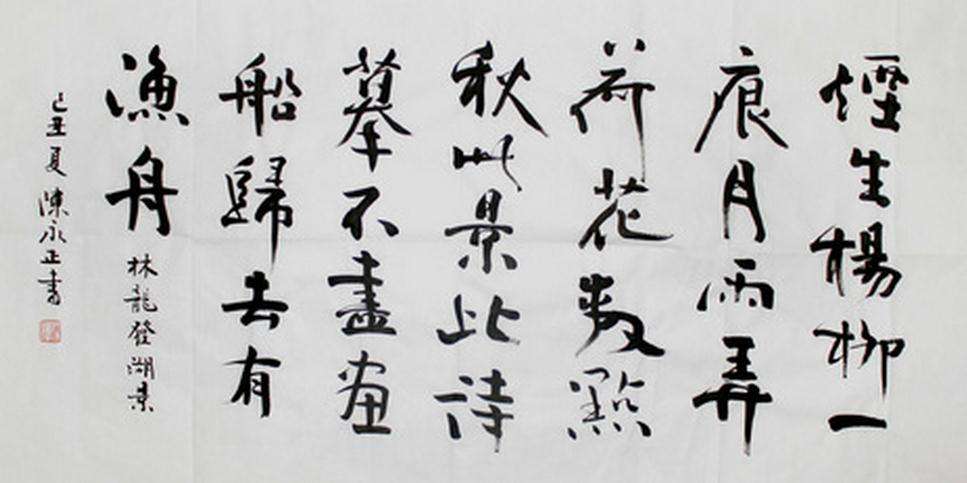 煙生楊柳一
痕月雨弄
荷花數點
秋此景此詩
摹不盡畫
船歸去有
漁舟 林龍發湖景
己丑夏 陳永正書